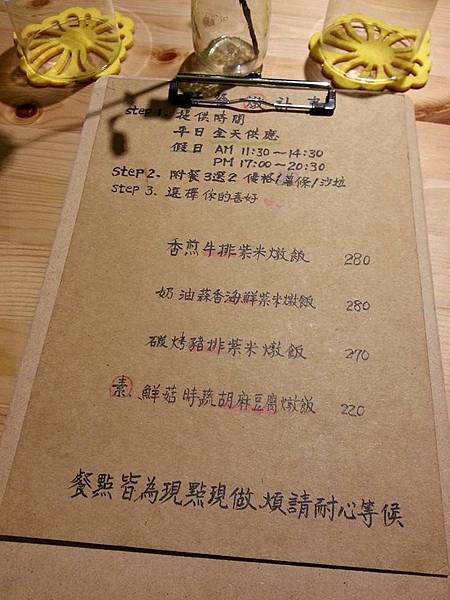 燉計
step 1. 提供時間
平日 全天供應
假日 AM 11:30~14:30
PM 17:00~20:30
step 2. 附餐3選2 優格/薯條/沙拉
step 3. 選擇你的喜好
香煎牛排紫米燉飯 280
奶油蒜香海鮮紫米燉飯 280
碳烤豬排紫米燉飯 270
素、鮮菇時蔬胡麻豆腐燉飯 220
餐點皆為現點現做 煩請耐心等候